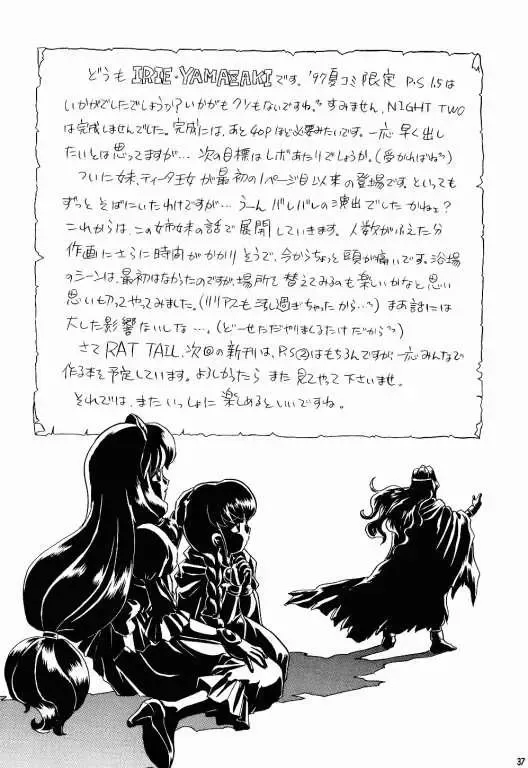 どうも IRIE・YAMAZAKIです。'97夏コミ限定 P.S 1.5は
いかがでしたでしょうか?いかがもクソもないですね。すみません、NIGHT TWO
は完成しませんでした。完成には、あと40Pほど必要みたいです。一応 早く出し
たいとは思ってますが… 次の目標はレボあたりでしょうか。(受かればね)
ついに妹、ティータ王女が最初の1ページ目以来の登場です。といっても
ずっと そばにいたわけですが… うーん バレバレの演出でした かねェ?
これからは、この姉妹の話で展開していきます。人数がふえた分
作画にさらに時間がかかりそうで、今からちょっと頭が痛いです。浴場
のシーンは、最初はなかったのですが、場所って替えてみるのも楽しいかなと思い
思い切ってやってみました。(リリアスも 過ぎちゃったから…) まあ話には
大した影響ないしな…。(どーせただやりまくるだけだから)
さて RAT TAIL、次の新刊は、P.S②はもちろんですが、一応みんなで
作る本を予定しています。よろしかったら また 見てやって下さいませ。
それでは、またいっしょに 楽しめるといいですね。
37